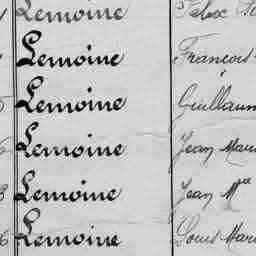 Lemoine
Lemoine François
Lemoine Guillaum
Lemoine Jean Mari
Lemoine Jean Mie
Lemoine Louis Mari